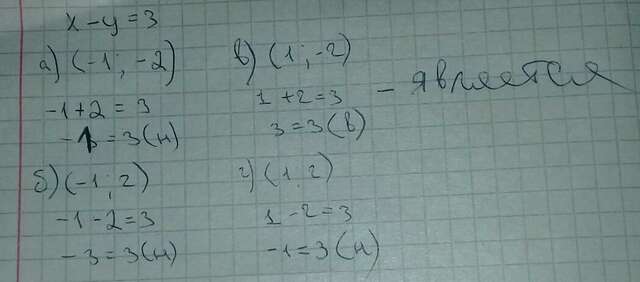 x-y=3
а) (-1; -2)
-1+2=3
-1=3(н)
б) (-1; 2)
-1-2=3
-3=3(н)
в) (1; -2)
1+2=3
3=3(в)
- является
г) (1 2)
1-2=3
-1=3(н)